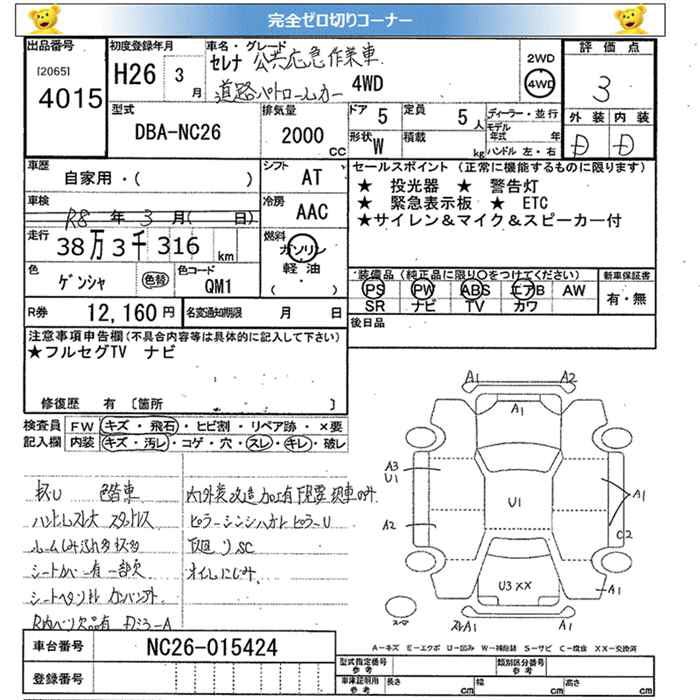 完全ゼロ切りコーナー
出品番号
[2065]
4015
初度登録年月
H26 3月
車名・グレード
セレナ 公共応急作業車
道路パトロールカー 4WD
2WD
4WD
評価点
3
外装 内装
D D
型式
DBA-NC26
排気量
2000 CC
ドア 5
定員 5人
形状 W
積載 kg
ディーラー・並行
モデル年式 年
ハンドル 左・右
車歴
自家用・( )
シフト AT
車検
R8年3月( 日)
冷房 AAC
走行
38万3千316 km
燃料
ガソリン
軽油
( ・ )
色
ゲンシャ
色替
色コード
QM1
セールスポイント (正常に機能するものに限ります)
★ 投光器 ★ 警告灯
★ 緊急表示板 ★ ETC
★サイレン&マイク&スピーカー付
装備品 (純正品に限り○をつけてください)
PS PW ABS エアB AW
SR ナビ TV カワ
新車保証書
有・無
R券 12,160円
名変通知期限 月 日
後日品
注意事項申告欄(不具合内容等は具体的に記入して下さい)
★フルセグTV ナビ
修復歴 有 [箇所 ]
検査員記入欄
FW キズ・飛石・ヒビ割・リペア跡・×要
内装 キズ・汚レ・コゲ・穴・スレ・キレ・破レ
色替車
内外装改造加工有
ハンドルスレ大
シートカバー有 一部欠
下廻りSC
オイルにじみ
A1
A2
A1
A3
U1
U1
A1
A2
C2
U3 XX
A1
A1
A1
A-キズ E-エクボ U-凹み W-補修跡 S-サビ C-腐食 XX-交換済
車台番号 NC26-015424
登録番号
型式指定番号
参考
類別区分番号
参考
車庫証明用
参考
長さ cm
幅 cm
高さ cm